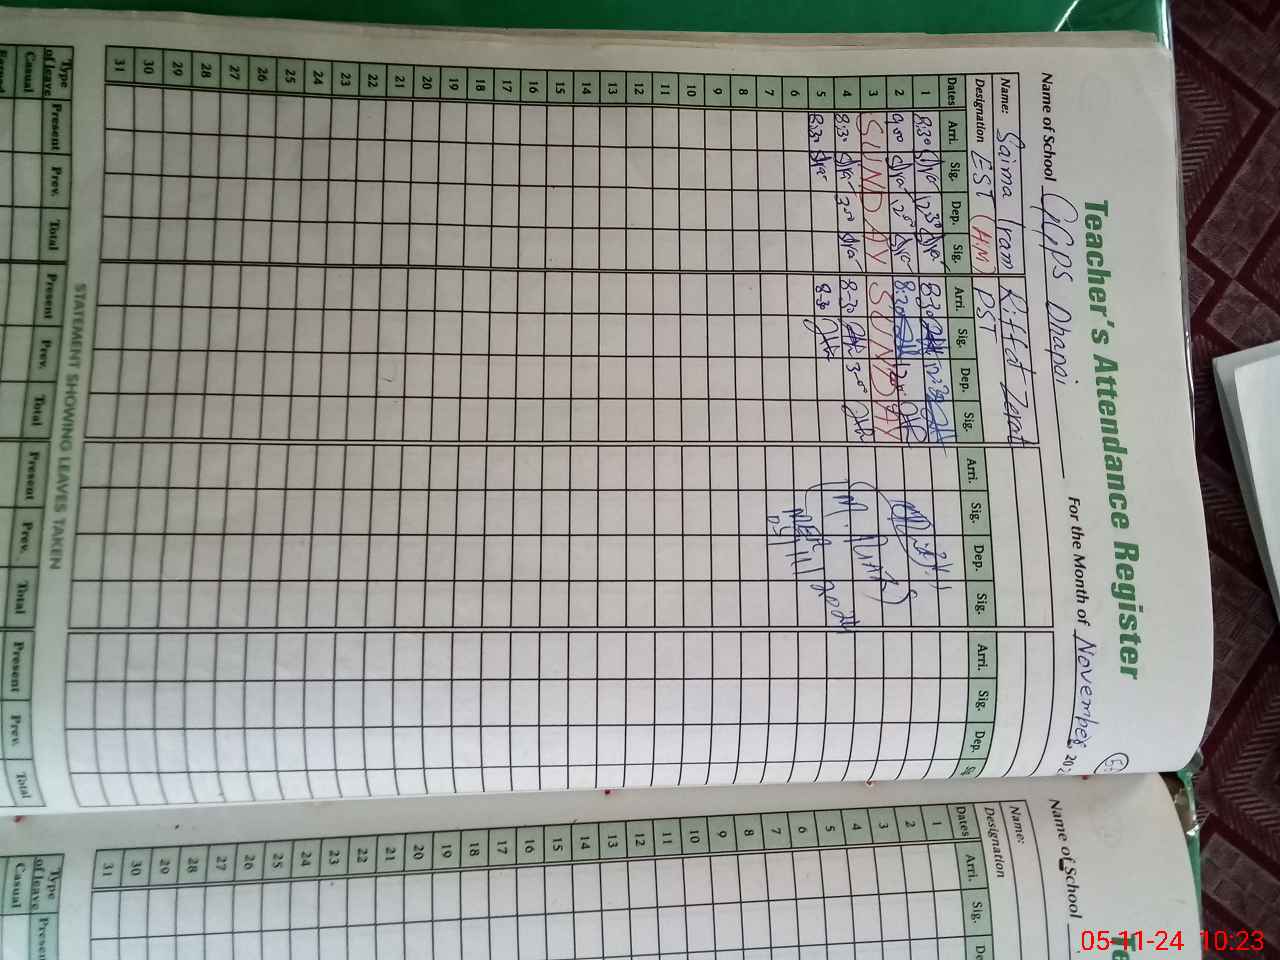 Teacher's Attendance Register
Name of School GGPS Dhapai For the Month of November, 202
Name: Saima Iram Riffat Zerat
Designation EST (HM) PST
Dates Arri. Sig. Dep. Sig. Arri. Sig. Dep. Sig. Arri. Sig. Dep. Sig. Arri. Sig. Dep. Sig
1 8:30 12:30 8:30 12:30
2 9:00 12:00 8:30 12:00
3 SUNDAY SUNDAY
4 8:30 3:00 8-30 3:00
5 8:30 8:30
6
7
8
9
10
11
12
13
14
15
16
17
18
19
20
21
22
23
24
25
26
27
28
29
30
31
MEA
05/11/2024
STATEMENT SHOWING LEAVES TAKEN
Type of leave Present Prev. Total Present Prev. Total Present Prev. Total Present Prev. Total
Casual
Earned
Te
Name of School
Name:
Designation
Dates Arri. Sig. De
1
2
3
4
5
6
7
8
9
10
11
12
13
14
15
16
17
18
19
20
21
22
23
24
25
26
27
28
29
30
31
Type of leave Presen
Casual
05-11-24 10:23